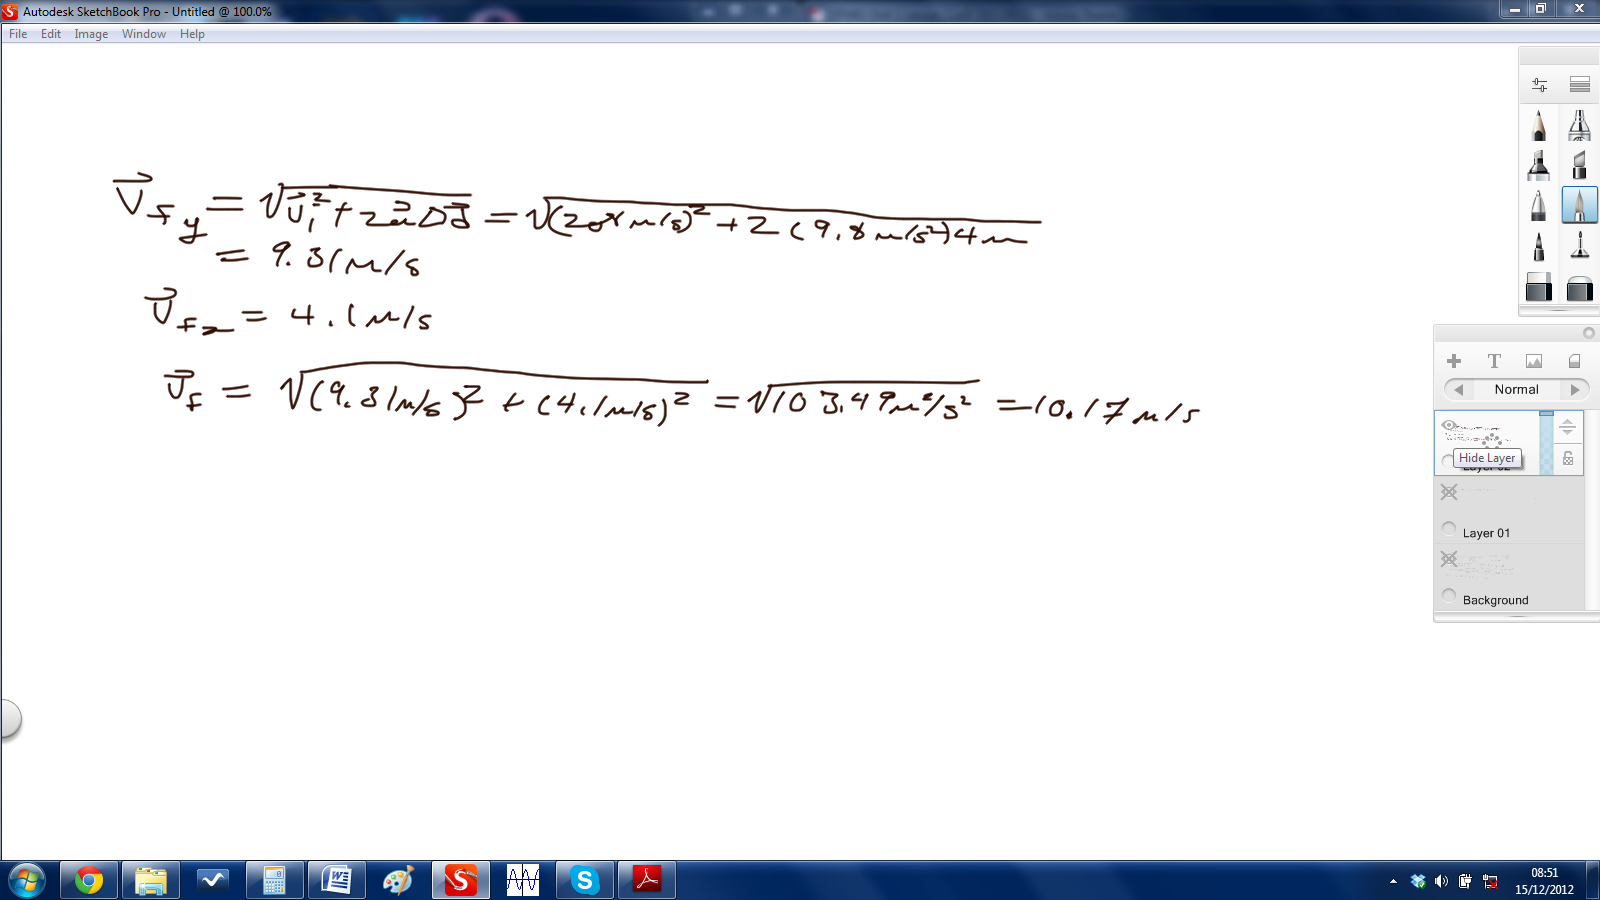 Autodesk SketchBook Pro - Untitled @ 100.0%
File Edit Image Window Help
V⃗fy = √(v⃗₁² + 2a⃗Δd⃗) = √((2.87m/s)² + 2(9.8m/s²)4m)
= 9.31m/s
V⃗fx = 4.1m/s
V⃗f = √((9.31m/s)² + (4.1m/s)²) = √(103.49m²/s²) = 10.17m/s
Normal
Hide Layer
Layer 01
Background
08:51
15/12/2012